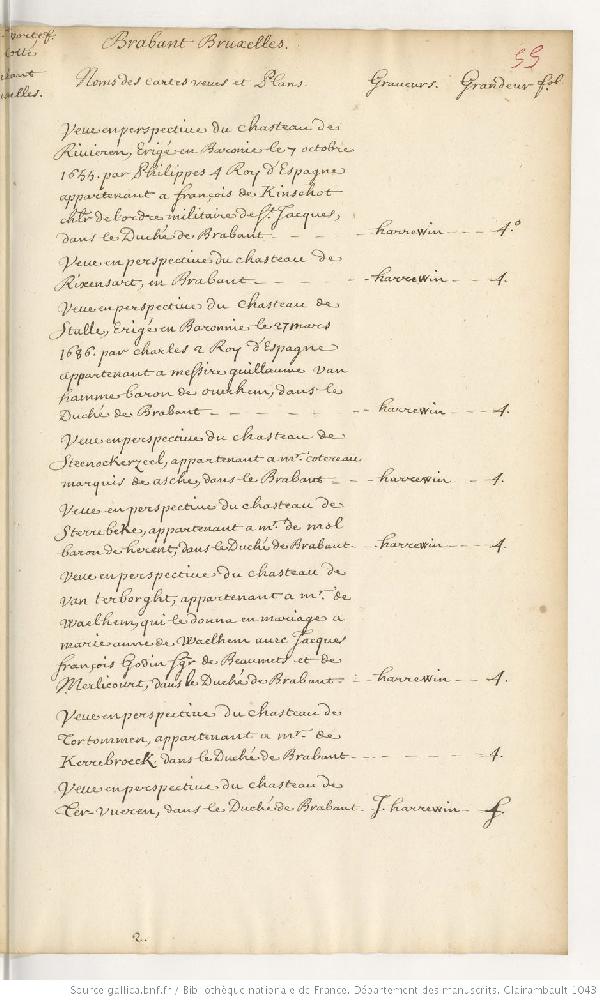 Brabant Bruxelles.
55
Noms des cartes veues et Plans Graveurs. Grandeur fol.
Veue en perspective du chasteau de
Rivieren, Erigé en Baronie le 7 octobre
1654. par Philippes 4 Roy d'Espagne
appartenant a françois de Kinschot
chlr. de l'ordre militaire de St. Jacques,
dans le Duché de Brabant - - - harrewin - - - 4.°
Veue en perspective du chasteau de
Rixensart, en Brabant - - - harrewin - - - 4.
Veue en perspective du chasteau de
Stalle, Erigé en Baronnie le 27 mars
1686. par charles 2 Roy d'Espagne
appartenant a messire guillaume van
hamme baron de ourhem, dans le
Duché de Brabant - - - harrewin - - - 4.
Veue en perspective du chasteau de
Steenockerzeel, appartenant a mr. cotereau
marquis de asche, dans le Brabant - - - harrewin - - 4.
Veue en perspective du chasteau de
Sterrebeke, appartenant a mr. de mol
baron de herent, dans le Duché de Brabant - harrewin - - - 4.
Veue en perspective du chasteau de
van terborght, appartenant a mr. de
Waelhem, qui le donna en mariage a
marie anne de Waelhem avec Jacques
françois Godin sgr. de Beaumets et de
Merlicourt, dans le Duché de Brabant - - harrewin - - 4.
Veue en perspective du chasteau de
Tortommen, appartenant a mr. de
Kerrebroeck, dans le Duché de Brabant - - - - - - 4.
Veue en perspective du chasteau de
Ter vueren, dans le Duché de Brabant - J. harrewin - f.
2.
Source gallica.bnf.fr / Bibliothèque nationale de France. Département des manuscrits. Clairambault 1043